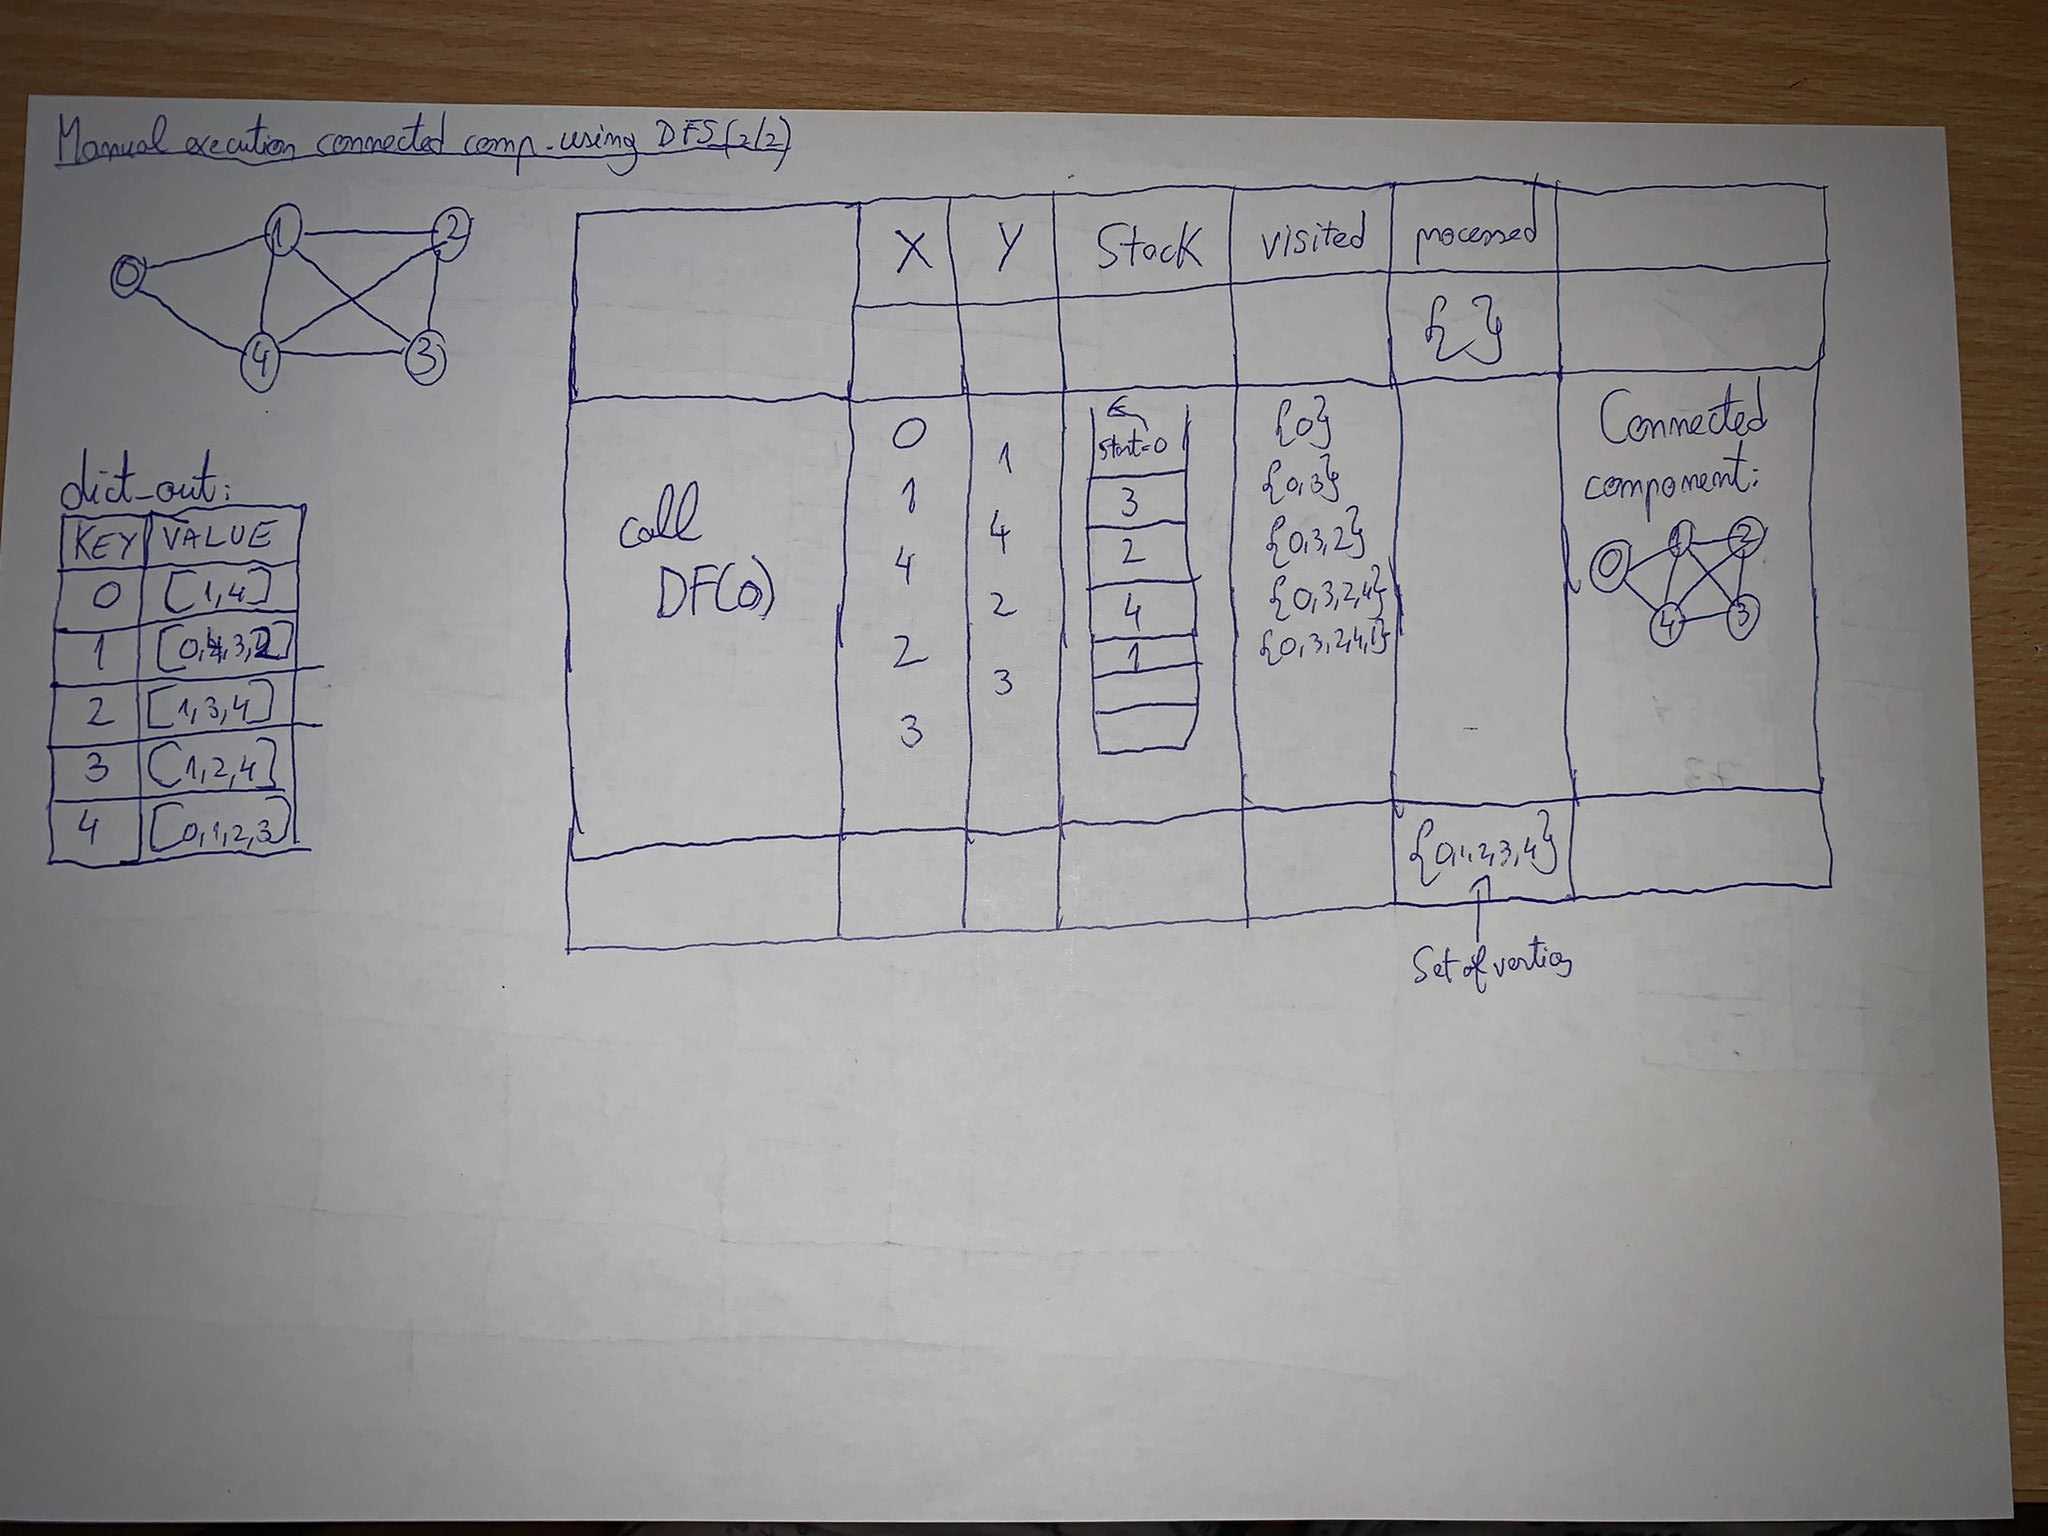 Manual execution connected comp. using DFS (2/2)
0
1
2
4
3
dict_out:
KEY VALUE
0 [1,4]
1 [0,4,3,2]
2 [1,3,4]
3 [1,2,4]
4 [0,1,2,3]
X Y Stack visited processed
{ }
call
DF(0)
0
1
4
2
3
1
4
2
3
start=0
3
2
4
1
{0}
{0,3}
{0,3,2}
{0,3,2,4}
{0,3,2,4,1}
Connected
component:
0
1
2
4
3
{0,1,2,3,4}
Set of vertices